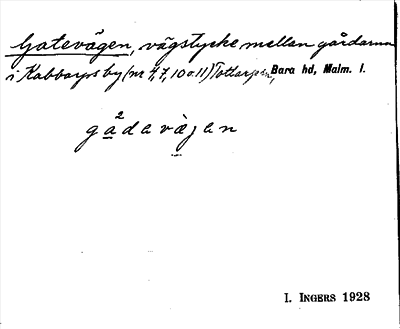 Gatevägen, vägstycke mellan gårdarna
i Kabbarps by (nr 4, 7, 10 o. 11) Tottarps sn, Bara hd, Malm. l.
ga²davàjen
I. INGERS 1928